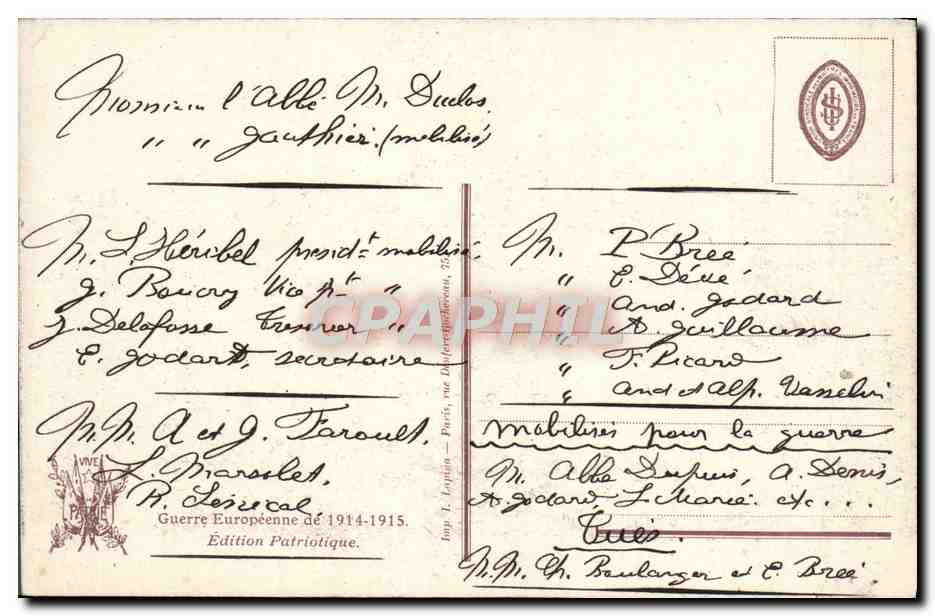 Monsieur l'abbé M. Duclos.
" " Gauthier. (mobilisé)
M. L. Héribel présidt mobilisé.
G. Boucrey Vice pt "
J. Delafosse Tresorier "
E. Godart, secretaire
M.M. A et G. Faroult,
L. Marsolet,
R. Sénécal
VIVE
PATRIE
Guerre Européenne de 1914-1915.
Édition Patriotique.
Imp. I. Lapina - Paris, rue Denfert-Rochereau, 75.
M. P. Breé
" E. Dévé
" And. Godard
" A. Guillaume
" F. Picard
" And et Alp. Vasselin
mobilises pour la guerre
M. Abbe Dupuis, A. Denis,
A. Godard, L. Marie. etc...
Tués.
M.M. Ch. Boulanger et E. Breé.
CPARPHIL